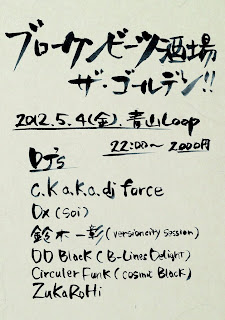 ブロークンビーツ酒場
ザ・ゴールデン!!
2012.5.4(金).青山Loop
22:00〜 2000円
DJ's
c.k a.k.a. dj force
Dx (soi)
鈴木一彰(versioncity session)
DD Black (B-Lines Delight)
Circuler Funk (cosmic Black)
ZuKaRoHi